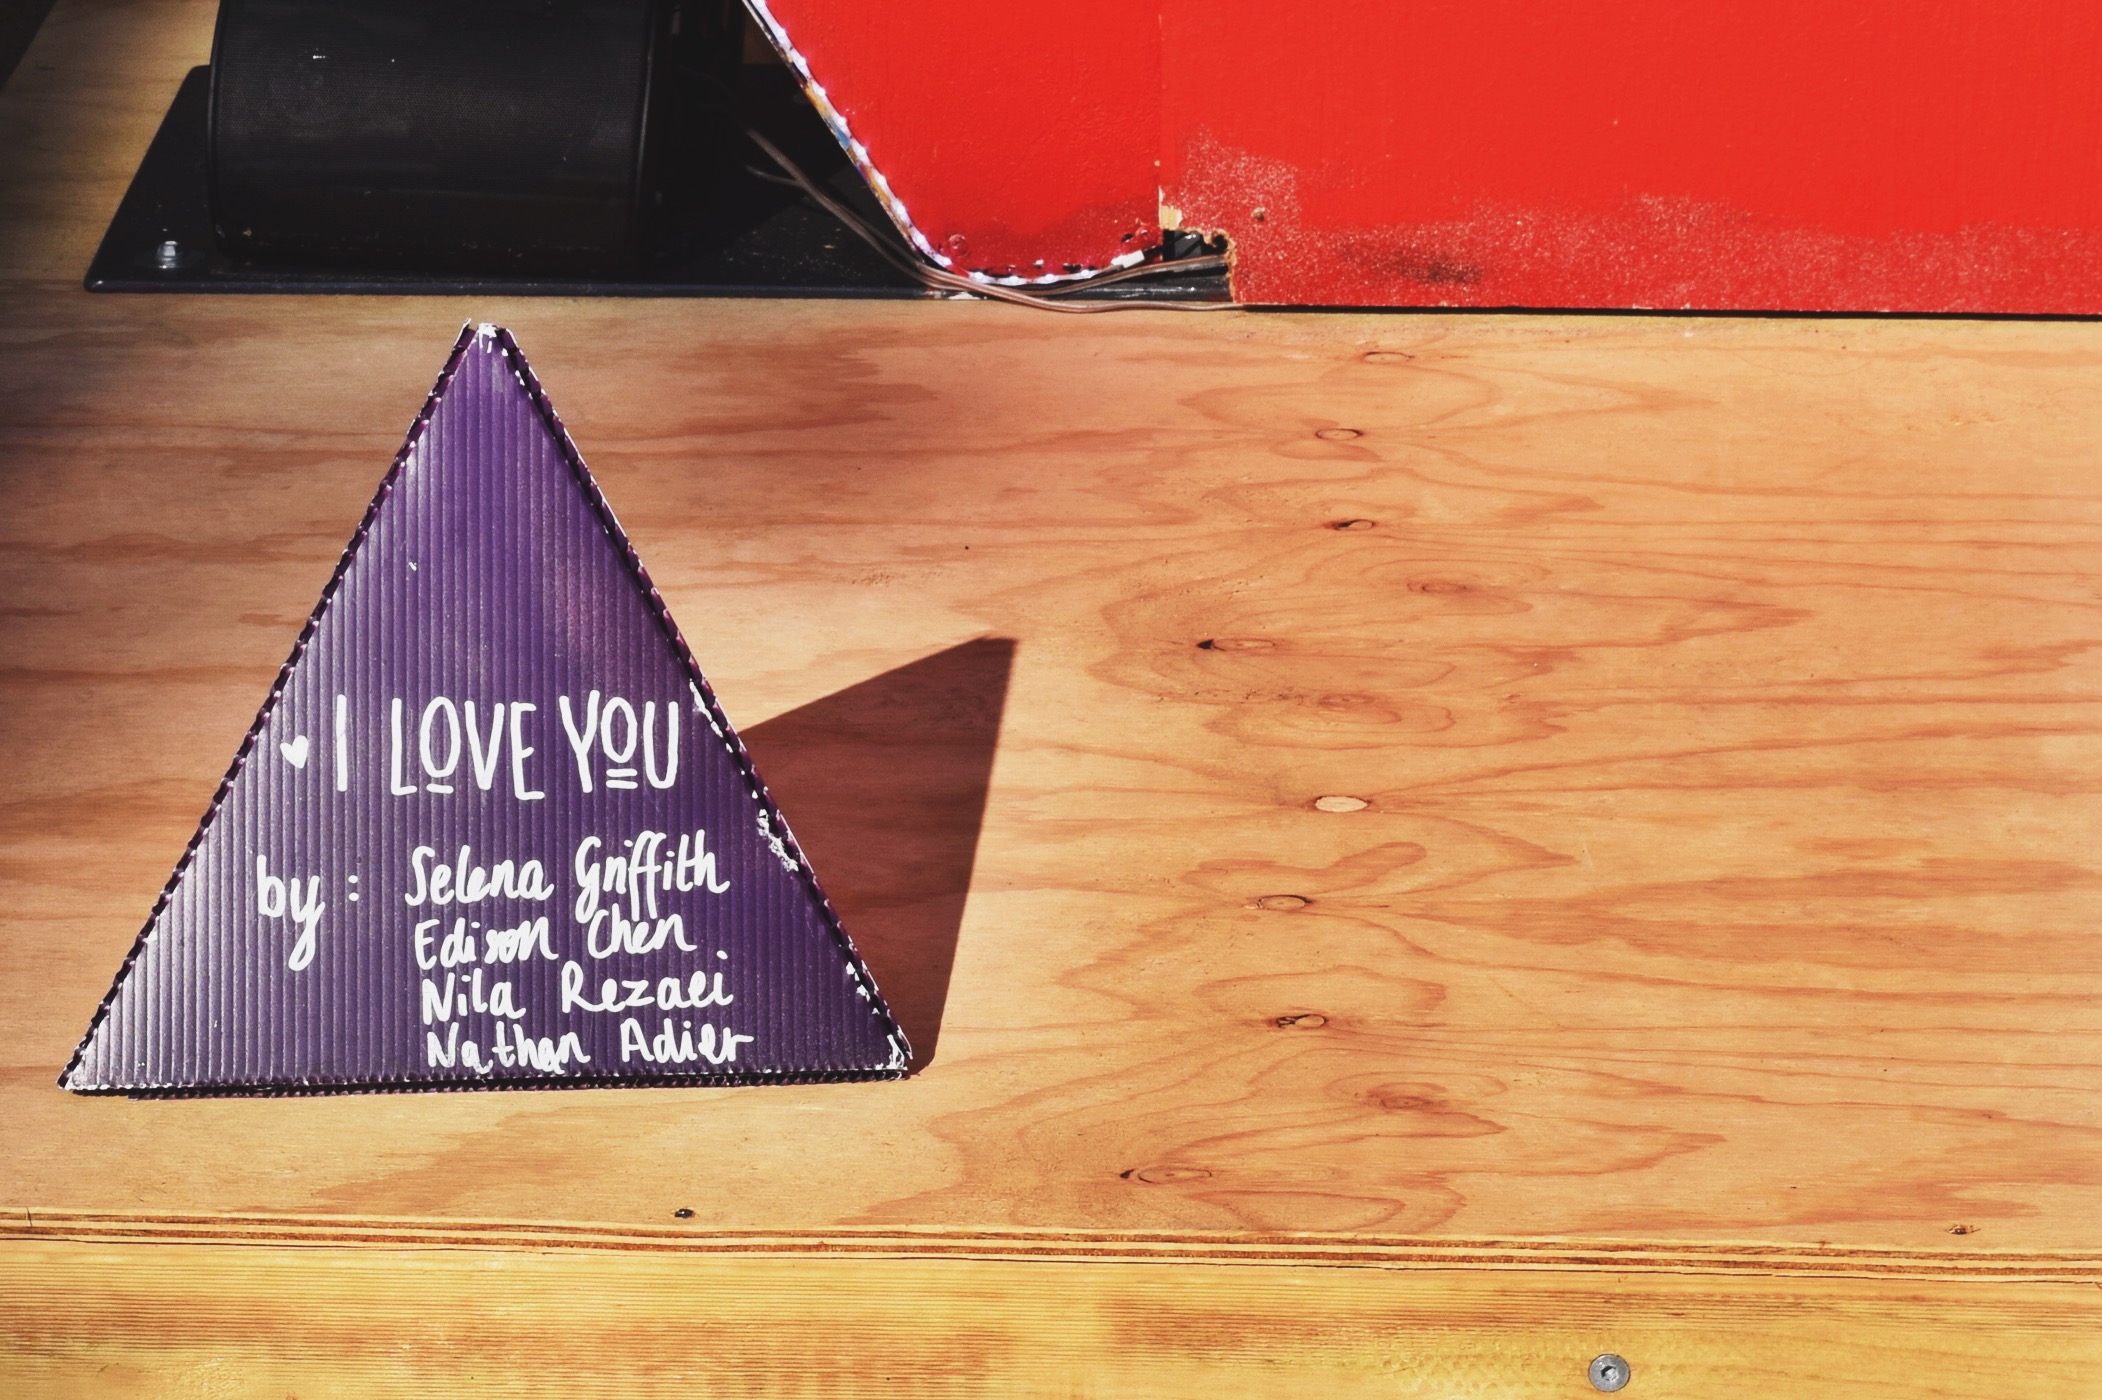 ♥ I LOVE YOU
by: Selena Griffith
Edison Chen
Nila Rezaei
Nathan Adier